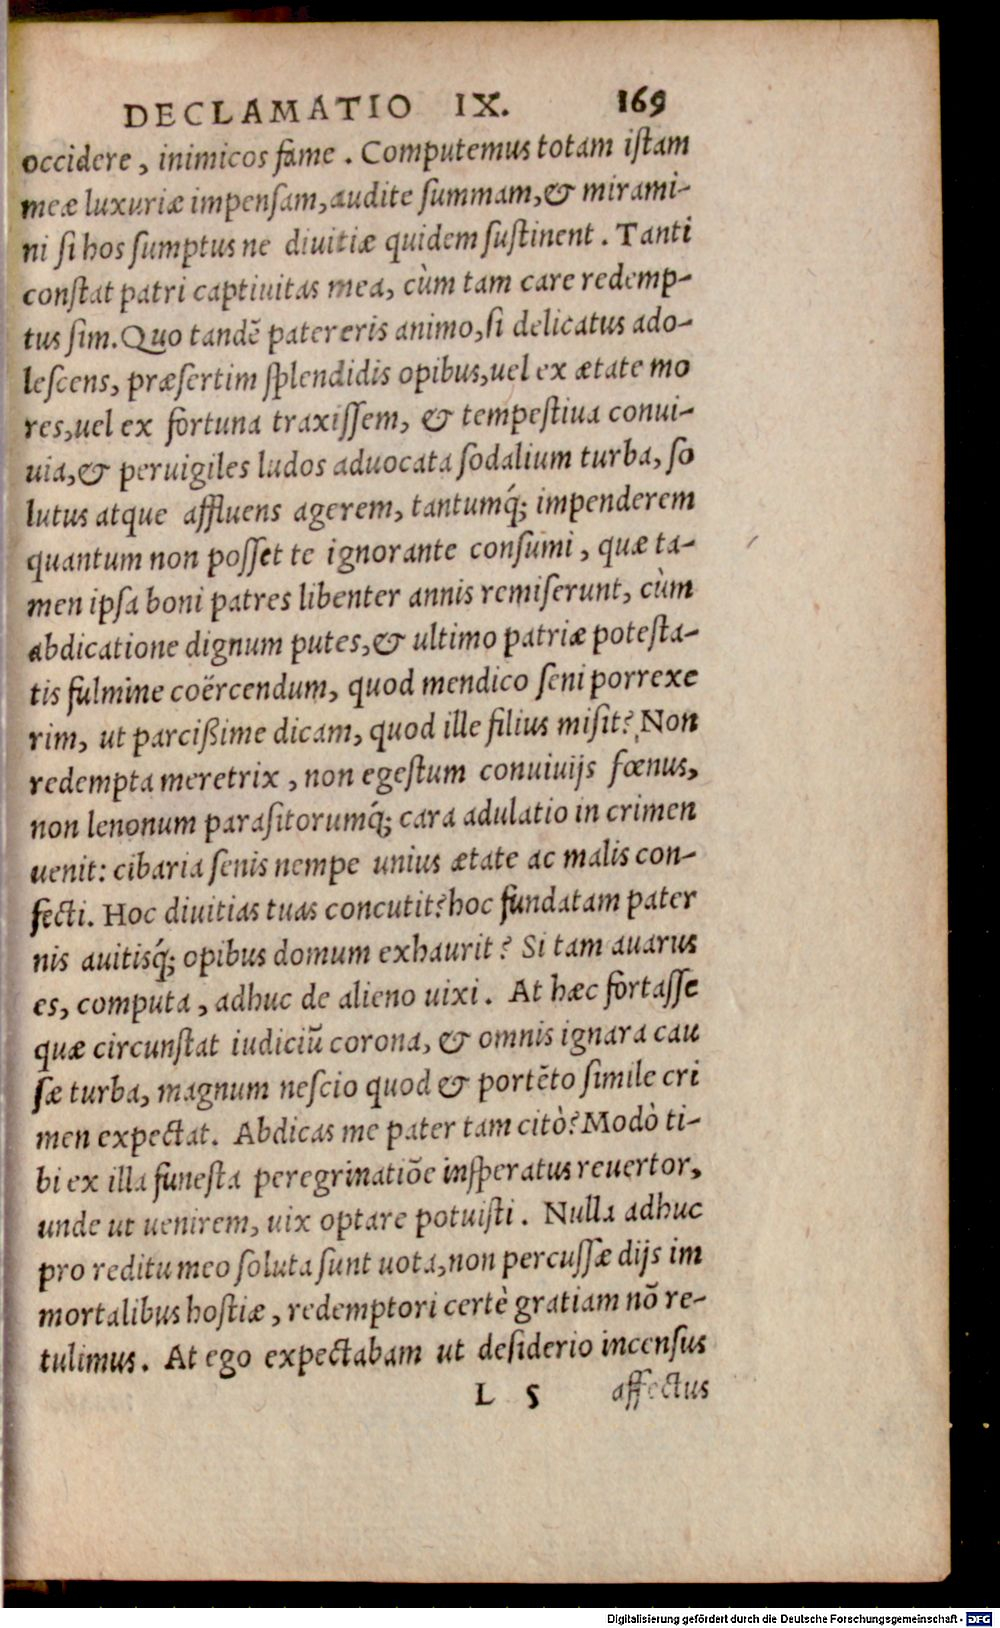 DECLAMATIO IX. 169
occidere, inimicos fame. Computemus totam iſtam
meæ luxuriæ impenſam, audite ſummam, & mirami-
ni ſi hos ſumptus ne diuitiæ quidem ſuſtinent. Tanti
conſtat patri captiuitas mea, cùm tam care redemp-
tus ſim. Quo tandẽ pater eris animo, ſi delicatus ado-
leſcens, præſertim ſplendidis opibus, uel ex ætate mo
res, uel ex fortuna traxiſſem, & tempeſtiua conui-
uia, & peruigiles ludos aduocata ſodalium turba, ſo
lutus atque affluens agerem, tantumq́; impenderem
quantum non poſſet te ignorante conſumi, quæ ta-
men ipſa boni patres libenter annis remiſerunt, cùm
abdicatione dignum putes, & ultimo patriæ poteſta-
tis fulmine coërcendum, quod mendico ſeni porrexe
rim, ut parcißime dicam, quod ille filius miſit? Non
redempta meretrix, non egeſtum conuiuijs fœnus,
non lenonum paraſitorumq́; cara adulatio in crimen
uenit: cibaria ſenis nempe unius ætate ac malis con-
fecti. Hoc diuitias tuas concutit? hoc fundatam pater
nis auitisq́; opibus domum exhaurit? Si tam auarus
es, computa, adhuc de alieno uixi. At hæc fortaſſe
quæ circunſtat iudiciũ corona, & omnis ignara cau
ſæ turba, magnum neſcio quod & portẽto ſimile cri
men expectat. Abdicas me pater tam citò? Modò ti-
bi ex illa funeſta peregrinatiõe inſperatus reuertor,
unde ut uenirem, uix optare potuiſti. Nulla adhuc
pro reditu meo ſoluta ſunt uota, non percuſſæ dijs im
mortalibus hoſtiæ, redemptori certè gratiam nõ re-
tulimus. At ego expectabam ut deſiderio incenſus
L 5 affectus
Digitalisierung gefördert durch die Deutsche Forschungsgemeinschaft - DFG